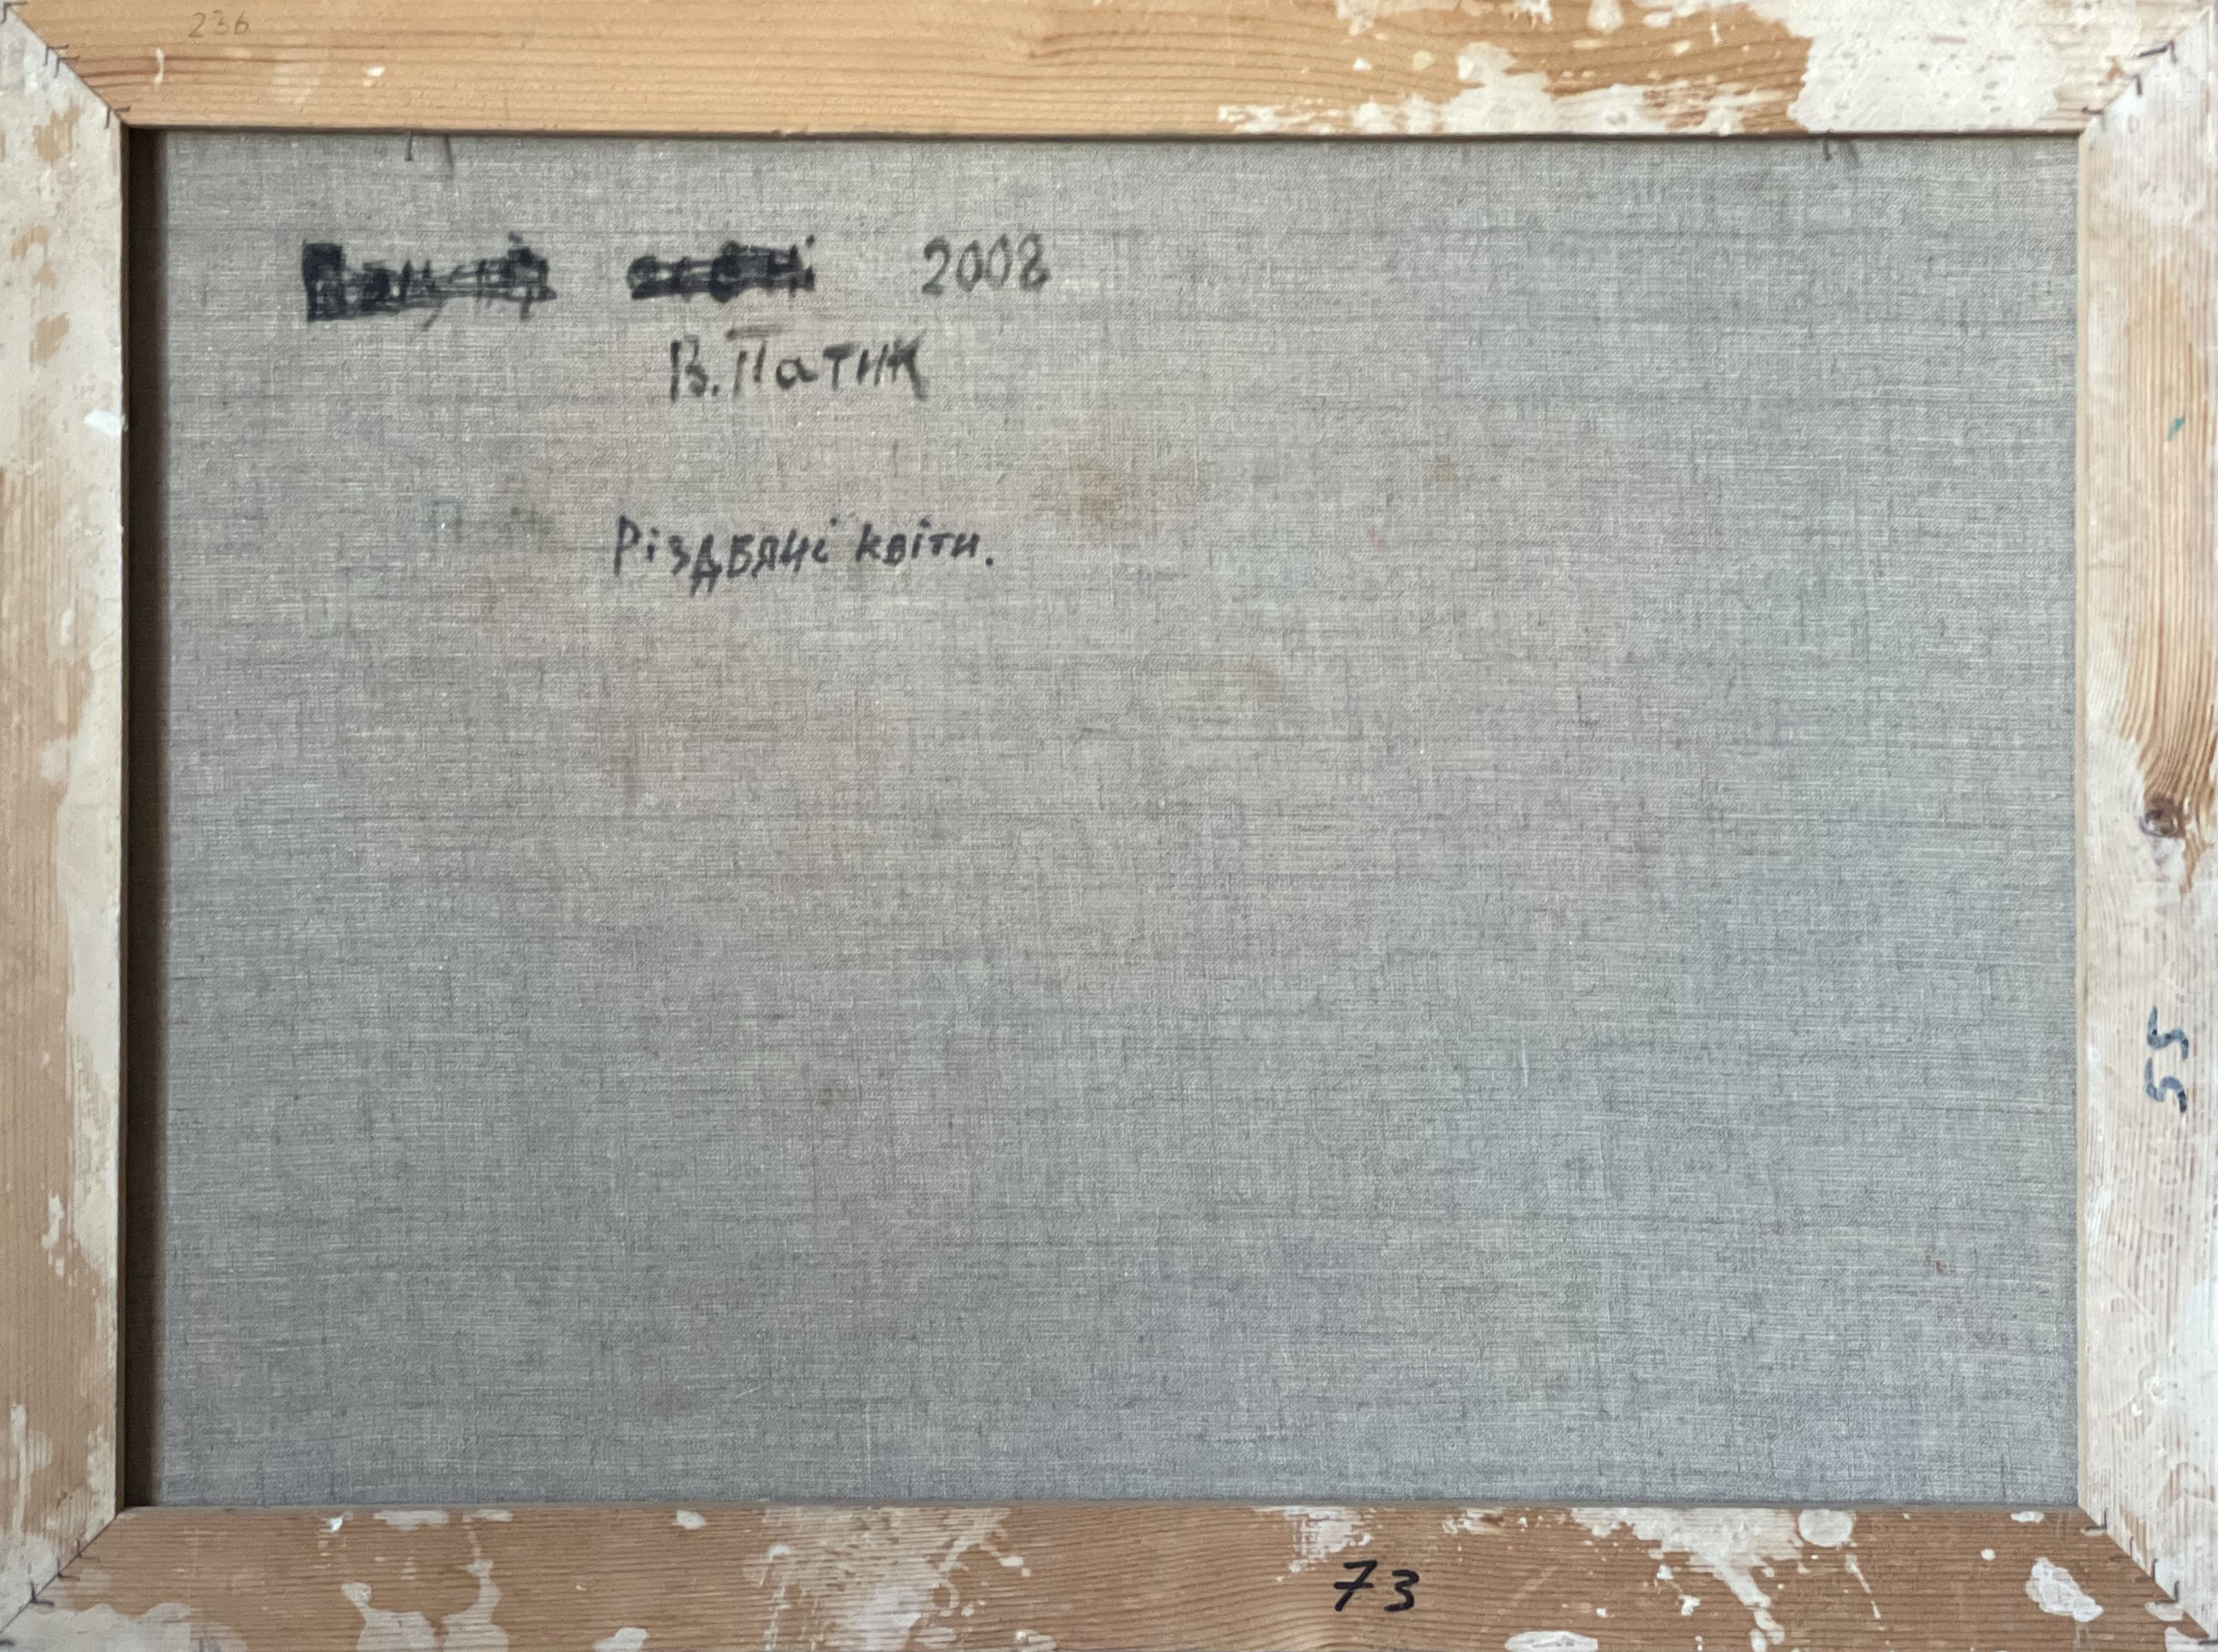 236
2008
В. Патик
Різдвяні квіти.
55
73